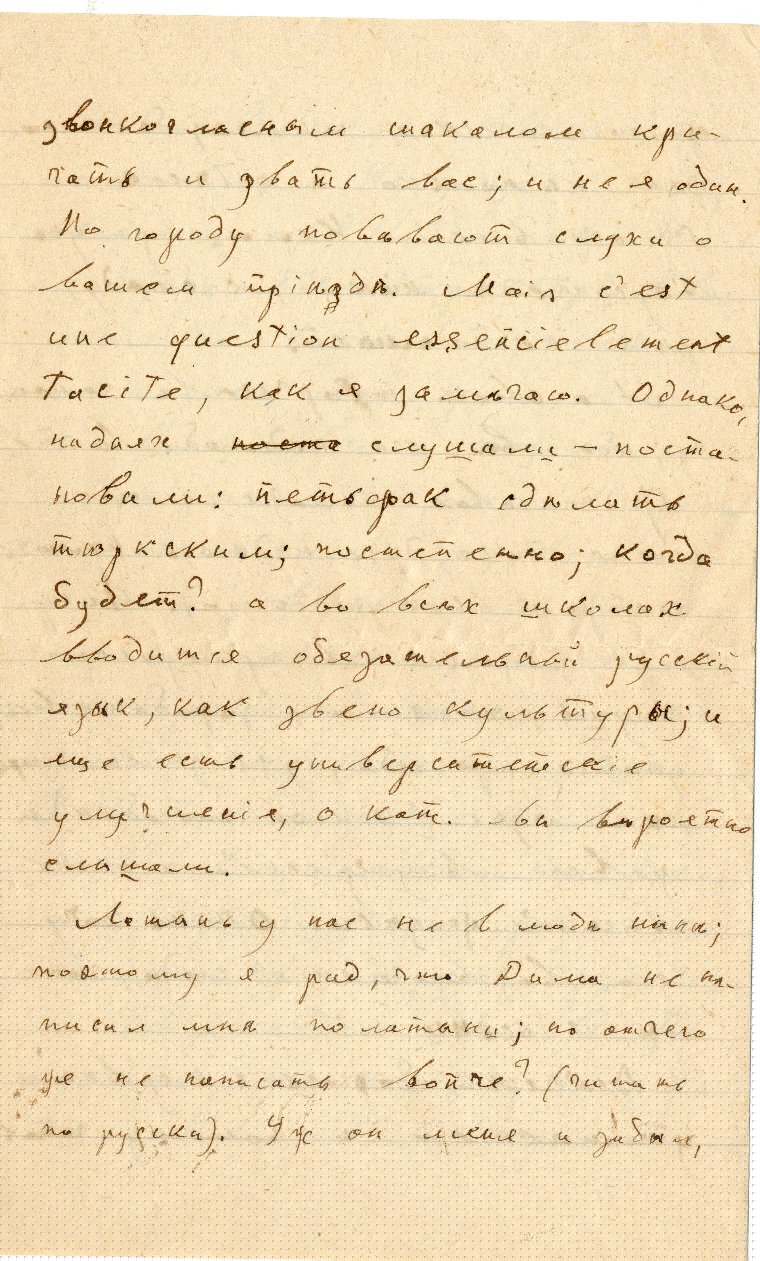 звонкогласным шакалом кри-
чать и звать вас; и не я один.
По городу повѣвают слухи о
вашем пріѣздѣ. Mais c'est
une question essencielement
tacite, как я замѣчаю. Однако,
надиях поста слушали — поста-
новили: петьфак сдѣлать
тюркским; постепенно; когда
будет? а во всѣх школах
вводится обязательный русскій
язык, как звено культуры; и
еще есть университетскіе
улучшенія, о кот. вы вѣроятно
слышали.
Латынь у нас не в модѣ нынѣ;
поэтому я рад, что Дима не на-
писал мнѣ по латыни; но отчего
же не написать вопче? (читать
по русски). Уж он меня и забыл,